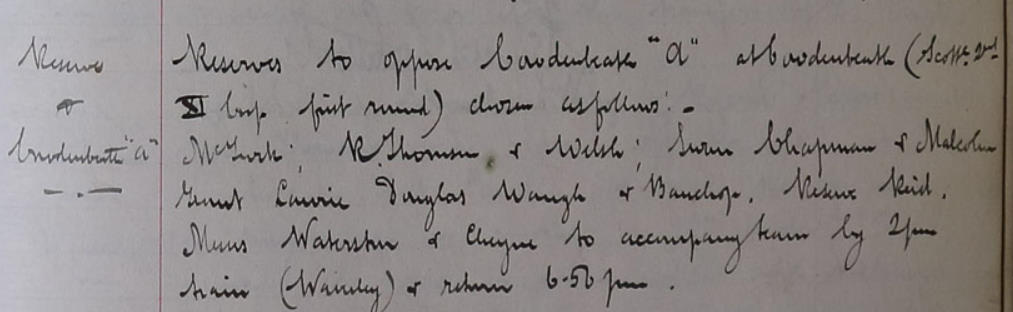 Reserves
&
Cowdenbeath "A"
Reserves to oppose Cowdenbeath "A" at Cowdenbeath (Scott. 2nd
XI Cup first round) chosen as follows: -
McTurk; R. Thomson & Welsh; Swan Chapman & Malcolm
Grant Lawrie Douglas Waugh & Bauchop. Reserve Reid.
Messrs Waterston & Cheyne to accompany team by 2pm
train (Waverley) & return 6-50 pm.